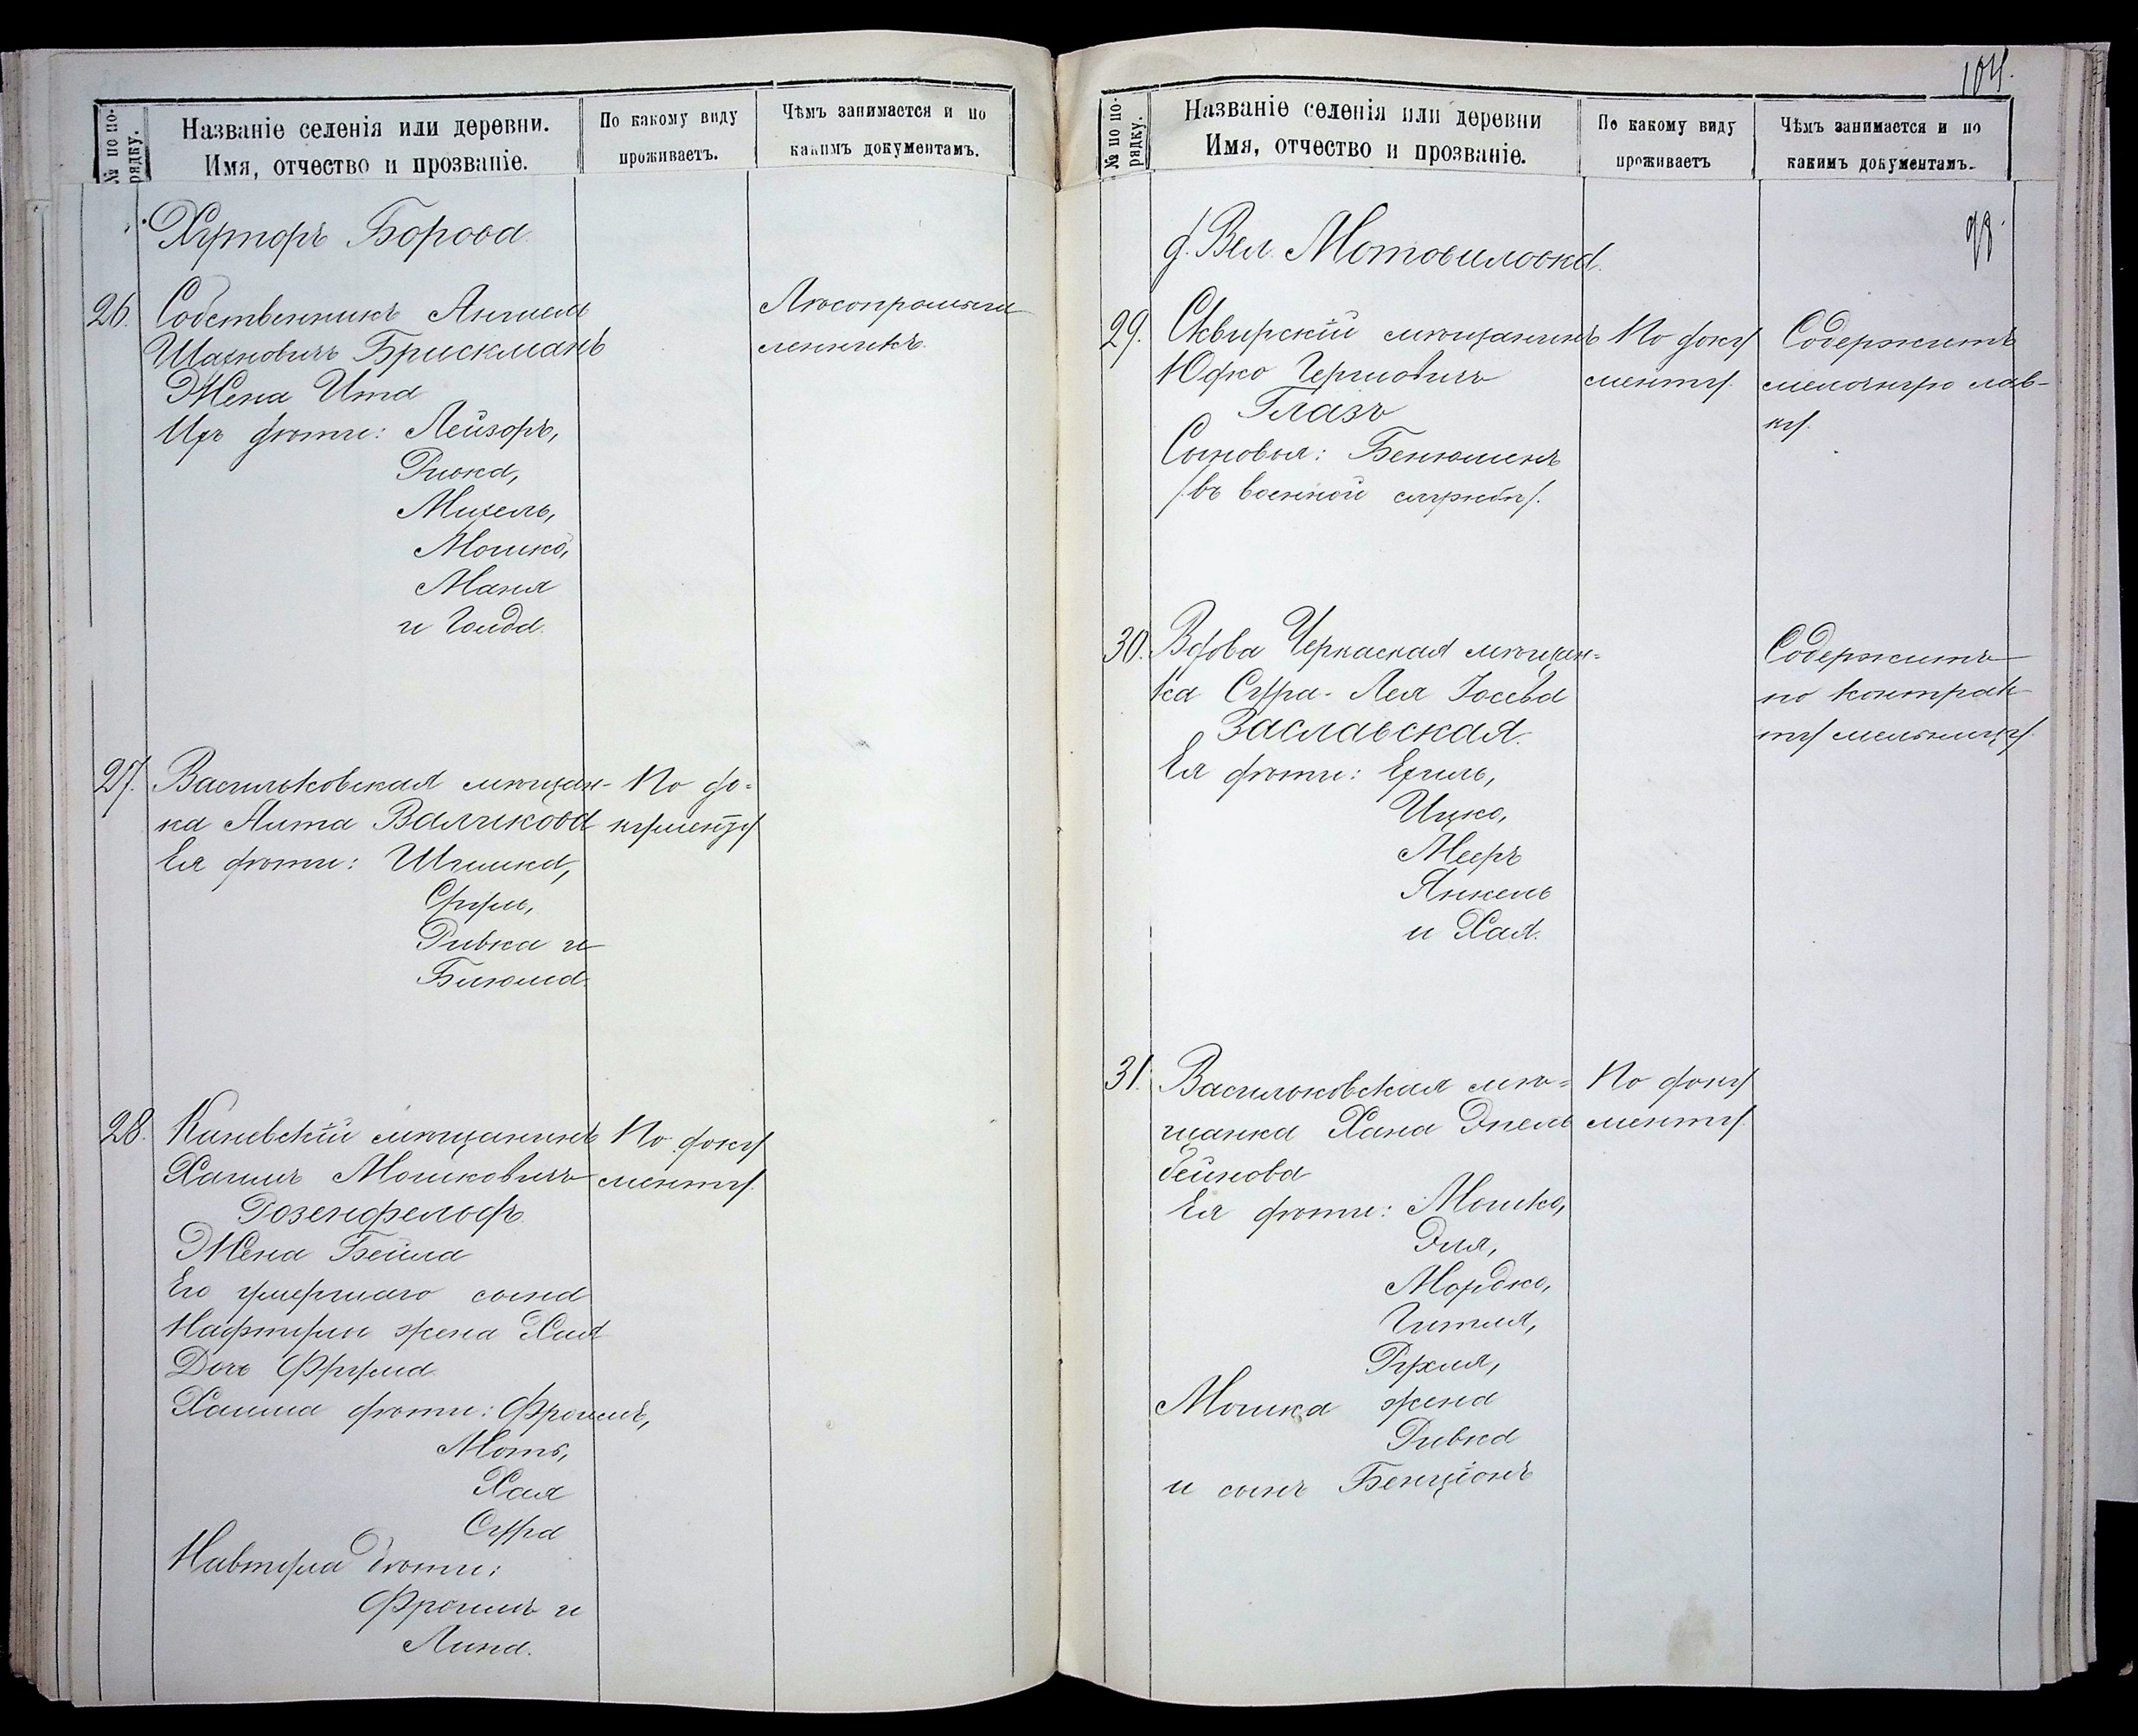 № по по-
рядку.
Названіе селенія или деревни.
Имя, отчество и прозваніе.
По какому виду
проживаетъ.
Чѣмъ занимается и по
какимъ документамъ.
Хуторъ Борова
26. Собственникъ Анчиль
Шахновичъ Брискманъ
Жена Ита
Ихъ дѣти: Лейзоръ,
Ривка,
Михель,
Мошко,
Маня
и Голда.
Лѣсопромыш
ленникъ.
27. Васильковская мѣщан-
ка Лита Валикова
Ея дѣти: Шлимка,
Сруль,
Ривка и
Блюма.
По до-
кументу
28. Каневскій мѣщанинъ
Хаимъ Мошковичъ
Розенфельдъ
Жена Бейла
Его умершаго сына
Нафтули жена Хая
Дочь Фрума
Хаима дѣти: Фроимъ,
Моть,
Хая
Сура
Навтула дѣти:
Фроимъ и
Лина.
По доку
менту.
104.
№ по по-
рядку.
Названіе селенія или деревни
Имя, отчество и прозваніе.
По какому виду
проживаетъ
Чѣмъ занимается и по
какимъ документамъ.
д. Вел. Мотовиловка.
29. Сквирскій мѣщанинъ
Юдко Гершовичъ
Глазъ
Сыновья: Бенюминъ
/въ военной службѣ/.
По доку
менту.
Содержитъ
мелочную лав-
ку.
30. Вдова Черкаская мѣщан-
ка Сура-Лея Іосева
Заславская.
Ея дѣти: Ехиль,
Ицко,
Мееръ
Янкель
и Хая.
Содержитъ
по контрак
ту мельницу.
31. Васильковская мѣ-
щанка Хана Энель
Бейнова
Ея дѣти: Мошко,
Эля,
Мордко,
Гитля,
Рухля,
Мошка жена
Ривка
и сынъ Бенціонъ
По доку
менту.